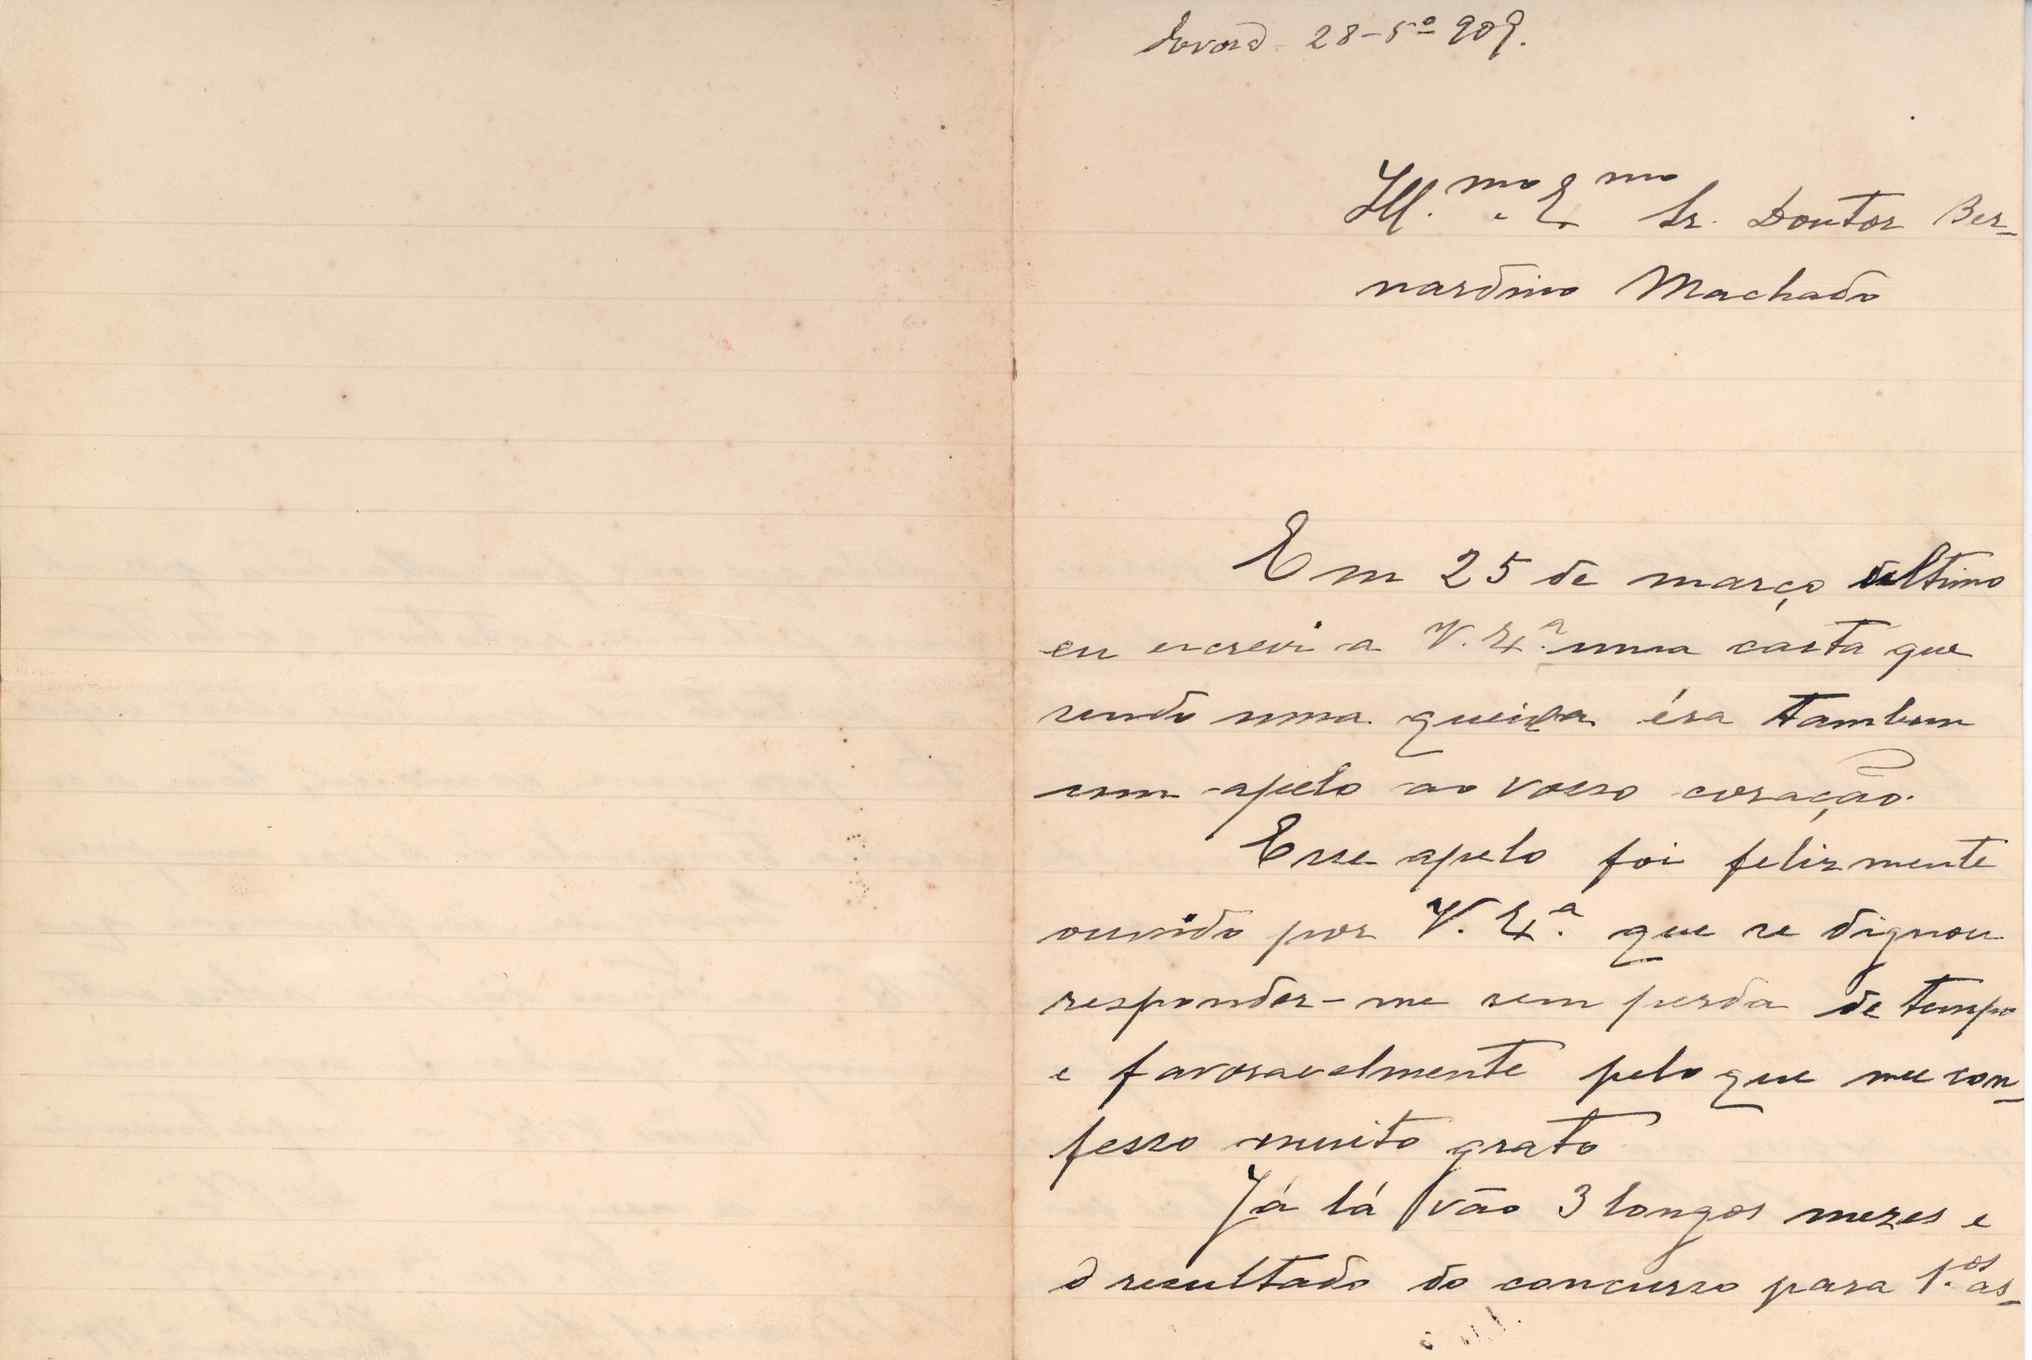 28-5º 909.
Ill.mo e Exmo Sr. Doutor Ber-
nardino Machado
Em 25 de março ultimo
eu escrevi a V. Exª. uma carta que
sendo uma queixa éra tambem
um apelo ao vosso coração.
Esse apelo foi felizmente
ouvido por V. Exª. que se dignou
responder-me sem perda de tempo
e favoravelmente pelo que me con-
fesso muito grato
Já lá vão 3 longos mezes e
o resultado do concurso para 1.os as-